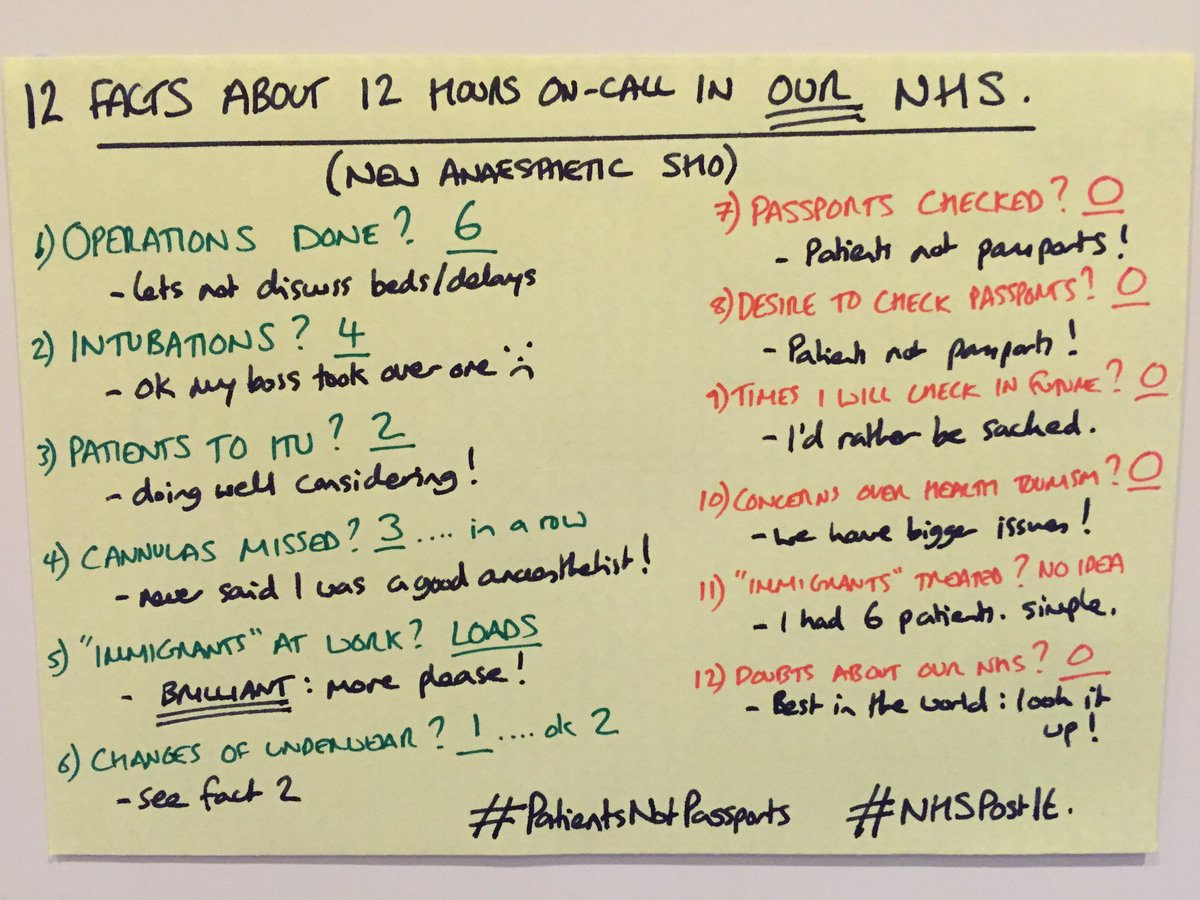 12 FACTS ABOUT 12 HOURS ON-CALL IN OUR NHS.
(NEW ANAESTHETIC SHO)
1) OPERATIONS DONE? 6
- Lets not discuss beds/delays
2) INTUBATIONS? 4
- ok my boss took over one :(
3) PATIENTS TO ITU? 2
- doing well considering!
4) CANNULAS MISSED? 3 .... in a row
- never said I was a good anaesthetist!
5) "IMMIGRANTS" AT WORK? LOADS
- BRILLIANT: more please!
6) CHANGES OF UNDERWEAR? 1 .... ok 2
- see fact 2
7) PASSPORTS CHECKED? 0
- Patients not passports!
8) DESIRE TO CHECK PASSPORTS? 0
- Patients not passports!
9) TIMES I WILL CHECK IN FUTURE? 0
- I'd rather be sacked.
10) CONCERNS OVER HEALTH TOURISM? 0
- we have bigger issues!
11) "IMMIGRANTS" TREATED? NO IDEA
- I had 6 patients. simple.
12) DOUBTS ABOUT OUR NHS? 0
- Best in the world: look it
up!
#PatientsNotPassports #NHSPostIt.